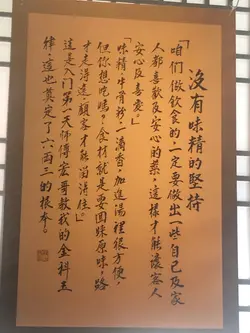 沒有味精的堅持
「咱們做飲食的一定要做出一些自己及家
人都喜歡及安心的菜，這樣才能讓客人
安心及喜愛。」
「味精、牛骨粉，一滴香，加進湯裡很方便，
但你想吃嗎？食材就是要回味原味，路
才走得遠，顧客才能留得住。」
這是入门第一天师傅宏哥教我的金科玉
律，這也奠定了六两三的根本。